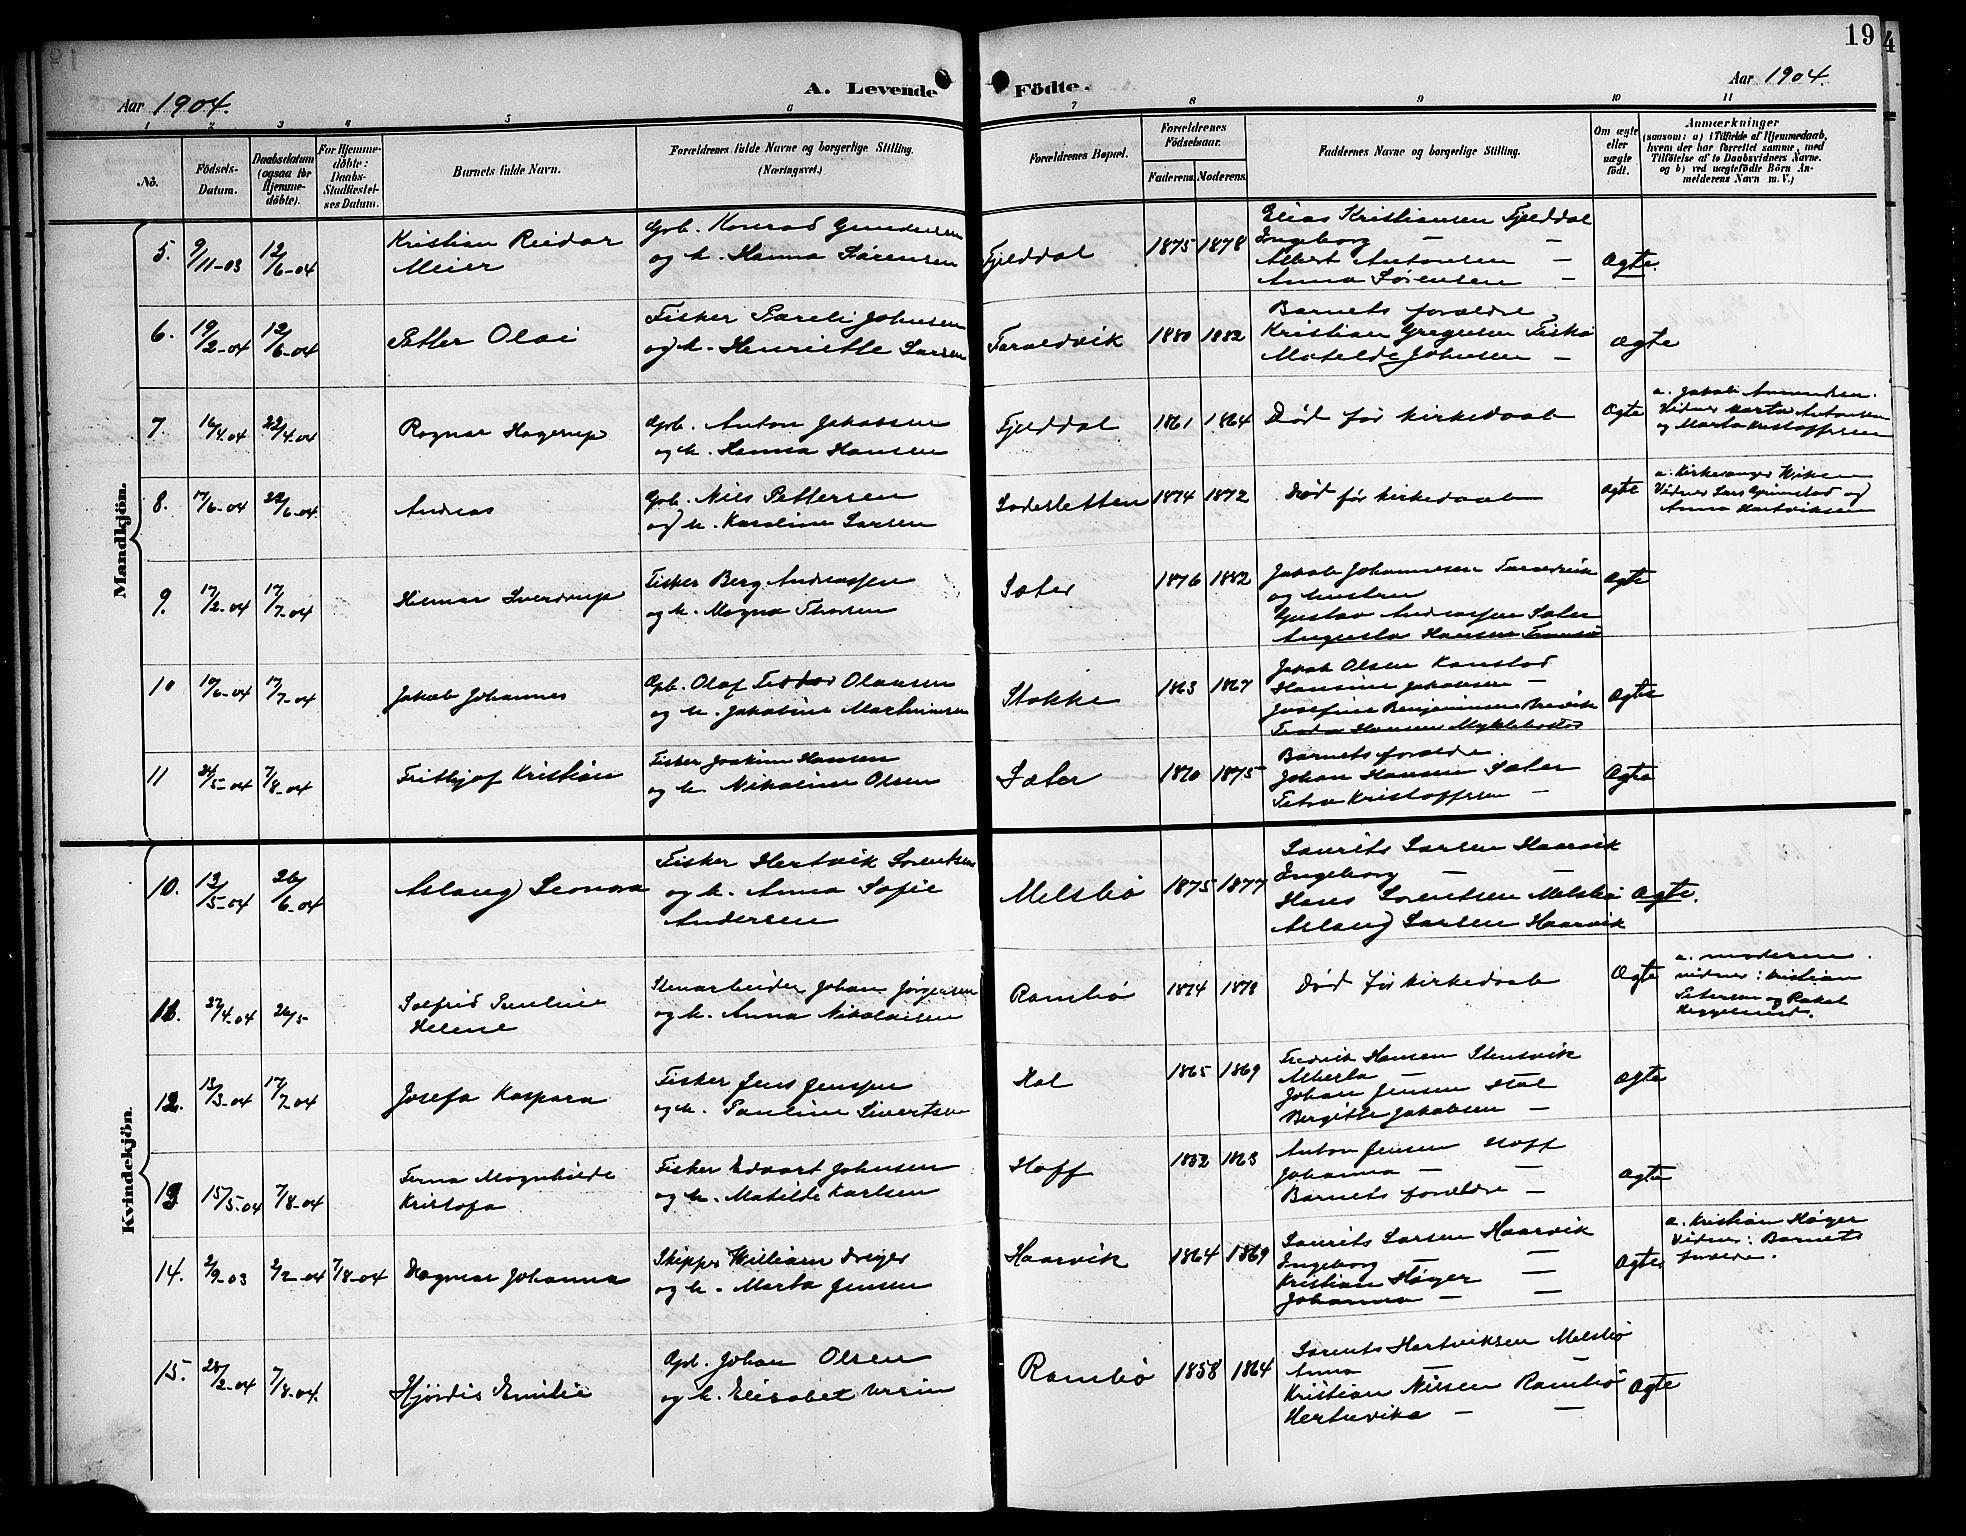 19
4
Aar 1904.
A. Levende
Födte.
Aar 1904.
1 2 3 4 5 6 7 8 9 10 11
No.
Födsels-
Datum.
Daabsdatum
(ogsaa for
Hjemme-
döbte).
For Hjemme-
döbte:
Daabs-
Stadfæstel-
ses Datum.
Barnets fulde Navn.
Forældrenes fulde Navne og borgerlige Stilling.
(Næringsvei.)
Forældrenes Bopæl.
Forældrenes
Födselsaar.
Faderens.
Moderens.
Faddernes Navne og borgerlige Stilling.
Om ægte
eller
uægte
født.
Anmærkninger
(saasom: a) i Tilfælde af Hjemmedaab,
hvem der har forrettet samme, med
Tilföielse af to Daabsvidners Navne,
og b) ved uægtefödte Börn An-
melderens Navn m. V.)
Mandkjön.
5. 9/11-03 12/6-04
Kristian Reidar
Meier
Gpb. Konrad Gundersen
og h. Hanna Sørensen
Fjelddal 1875 1878
Elias Kristiansen Fjelddal
Ingeborg — —
Albert Antonsen —
Anna Sørensen —
Ægte.
6. 19/2-04 12/6-04
Petter Olai
Fisker Pareli Johnsen
og h. Henriette Larsen
Taraldvik 1880 1882
Barnets forældre
Kristian Gregusen
Matelde Johnsen —
Ægte
7. 16/4.04 22/4.04
Ragnar Hagerup
Gpb. Anton Jakobsen
og h. Hanna Hansen
Fjelddal 1861 1864
Død før kirkedaab
Ægte
a. Jakob
Vidner Marta Antonsen
og Marta Kristoffersen
8. 17/6-04 22/6-04
Andreas
Gpb. Nils Pettersen
og h. Karoline Larsen
Ladesletten 1874 1872
Død før kirkedaab
Ægte
a. Kirkesanger
Vidner Lars Grimstad og
Anna Hartviksen
9. 17/2-04 17/7-04
Hilmar Sverdrup
Fisker Berg Andreassen
og h. Magna Thorsen
Sæter 1876 1882
Jakob Johannesen
og hustru
Gustav Andreassen Sæter
Augusta Hansen
Ægte
10 17/6-04 17/7-04
Jakob Johannes
Gpb. Olaf Teodor Olausen
og h. Jakobine Martinusen
Stokke 1863 1867
Jakob Olsen Kanstad
Hansine Jakobsen —
Josefine Benjaminsen Breivik
Hansen Myklebostad
Ægte
11 24/5-04 7/8-04
Frithjof Kristian
Fisker Joakim Hansen
og h. Nikoline Olsen
Sæter 1870 1875
Barnets forældre.
Johan Hansen Sæter
Petra Kristoffersen —
Ægte
Kvindekjön.
10. 12/5-04 26/6-04
Aslaug Leonora
Fisker Hertvik Lorentsen
og h. Anna Sofie
Andersen
Melsbø 1875 1877
Laurits Larsen Haarvik
Ingeborg — —
Hans Lorentsen Melsbø
Aslaug Larsen Haarvik
Ægte.
11. 27/4.04 26/5
Solfrid Pauline
Helene
Stenarbeider Johan Jørgensen
og h. Anna Nikolaisen
Rambø 1874 1878
Død før kirkedaab
Ægte
a. moderen.
vidner: Kristian
Petersen og Rakel
12. 13/3-04 17/7-04
Josefa Kaspara
Fisker Jens Jenssen
og h. Pauline Sivertsen
Hol 1865 1869
Fredrik Hansen Stensvik
Alberta —
Johan Jensen Hol
Bergitte Jakobsen —
Ægte
13 15/5-04 7/8-04
Magnhilde
Kristofa
Fisker Edvart Johnsen
og h. Matilde Karlsen
Hoff 1852 1863
Anton Jensen Hoff
Johanna — —
Barnets forældre —
Ægte
14. 2/9-03 2/2-04 7/8-04
Dagmar Johanna
Skipper William Dreyer
og h. Marta Jensen
Haarvik 1864 1869
Laurits Larsen Haarvik
Ingeborg — —
Kristian Høyer —
Johanna — —
Ægte
a. Kristian Høyer
Vidner: Barnets
forældre.
15. 28/2-04 7/8-04.
Hjørdis Emilie
Gpb. Johan Olsen
og h. Elisabet Ursin
Rambø 1858 1864
Lorents Hartviksen Melsbø
Anna — —
Kristian Nilsen Rambø
Hertuvika — —
Ægte